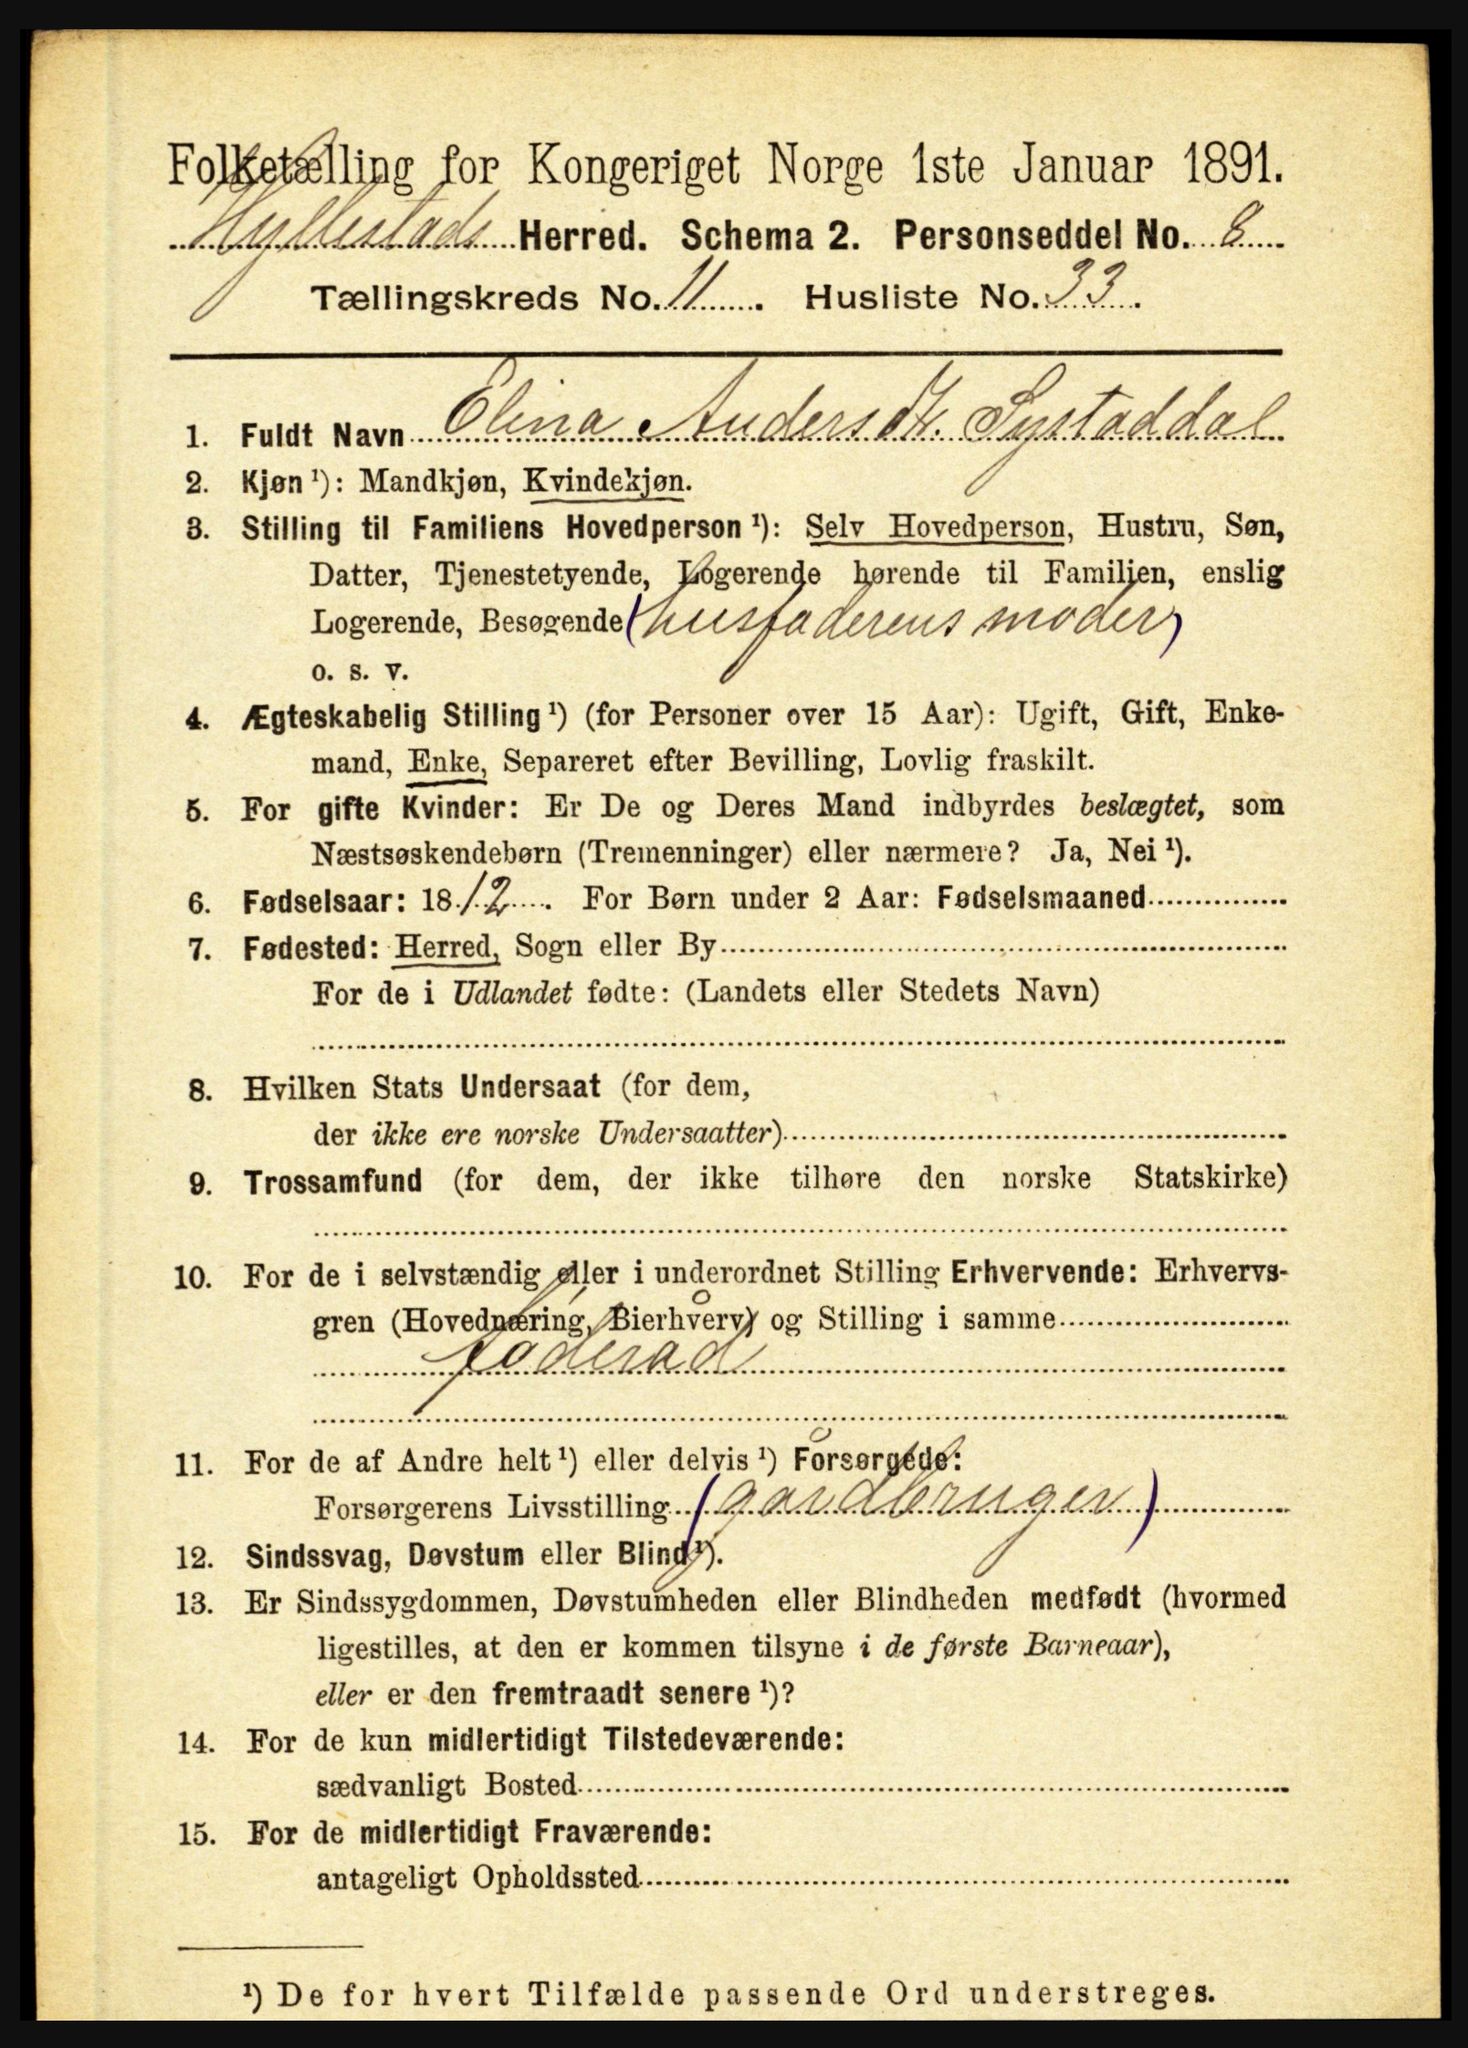 Folketælling for Kongeriget Norge 1ste Januar 1891.
Hyllestads Herred. Schema 2. Personseddel No. 8
Tællingskreds No. 11. Husliste No. 33.
1. Fuldt Navn Elina Andersdtr. Systaddal
2. Kjøn ¹): Mandkjøn, Kvindekjøn.
3. Stilling til Familiens Hovedperson ¹): Selv Hovedperson, Hustru, Søn,
Datter, Tjenestetyende, Logerende hørende til Familien, enslig
Logerende, Besøgende (husfaderens moder)
o. s. v.
4. Ægteskabelig Stilling ¹) (for Personer over 15 Aar): Ugift, Gift, Enke-
mand, Enke, Separeret efter Bevilling, Lovlig fraskilt.
5. For gifte Kvinder: Er De og Deres Mand indbyrdes beslægtet, som
Næstsøskendebørn (Tremenninger) eller nærmere? Ja, Nei ¹).
6. Fødselsaar: 1812. For Børn under 2 Aar: Fødselsmaaned
7. Fødested: Herred, Sogn eller By
For de i Udlandet fødte: (Landets eller Stedets Navn)
8. Hvilken Stats Undersaat (for dem,
der ikke ere norske Undersaatter)
9. Trossamfund (for dem, der ikke tilhøre den norske Statskirke)
10. For de i selvstændig eller i underordnet Stilling Erhvervende: Erhvervs-
gren (Hovednæring, Bierhverv) og Stilling i samme
föderåd
11. For de af Andre helt ¹) eller delvis ¹) Forsørgede:
Forsørgerens Livsstilling (gårdbruger)
12. Sindssvag, Døvstum eller Blind ¹).
13. Er Sindssygdommen, Døvstumheden eller Blindheden medfødt (hvormed
ligestilles, at den er kommen tilsyne i de første Barneaar),
eller er den fremtraadt senere ¹)?
14. For de kun midlertidigt Tilstedeværende:
sædvanligt Bosted
15. For de midlertidigt Fraværende:
antageligt Opholdssted
¹) De for hvert Tilfælde passende Ord understreges.